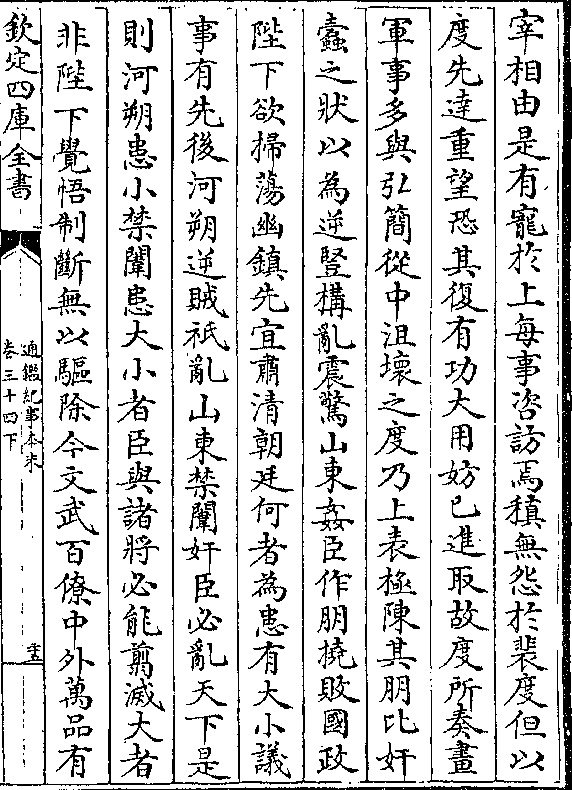 宰相由是有寵於上每事咨訪焉稹無怨於裴度但以
度先達重望恐其復有功大用妨已進取故度所奏畫
軍事多與引簡從中沮壞之度乃上表極陳其朋比奸
蠹之狀以為逆豎構亂震驚山東姦臣作朋撓敗國政
陛下欲掃蕩幽鎮先宜肅清朝廷何者為患有大小議
事有先後河朔逆賊祇亂山東禁闈奸臣必亂天下是
則河朔患小禁闈患大小者臣與諸將必能翦滅大者
非陛下覺悟制斷無以驅除今文武百僚中外萬品有
欽定四庫全書
通鑑紀事本末
卷三十四下